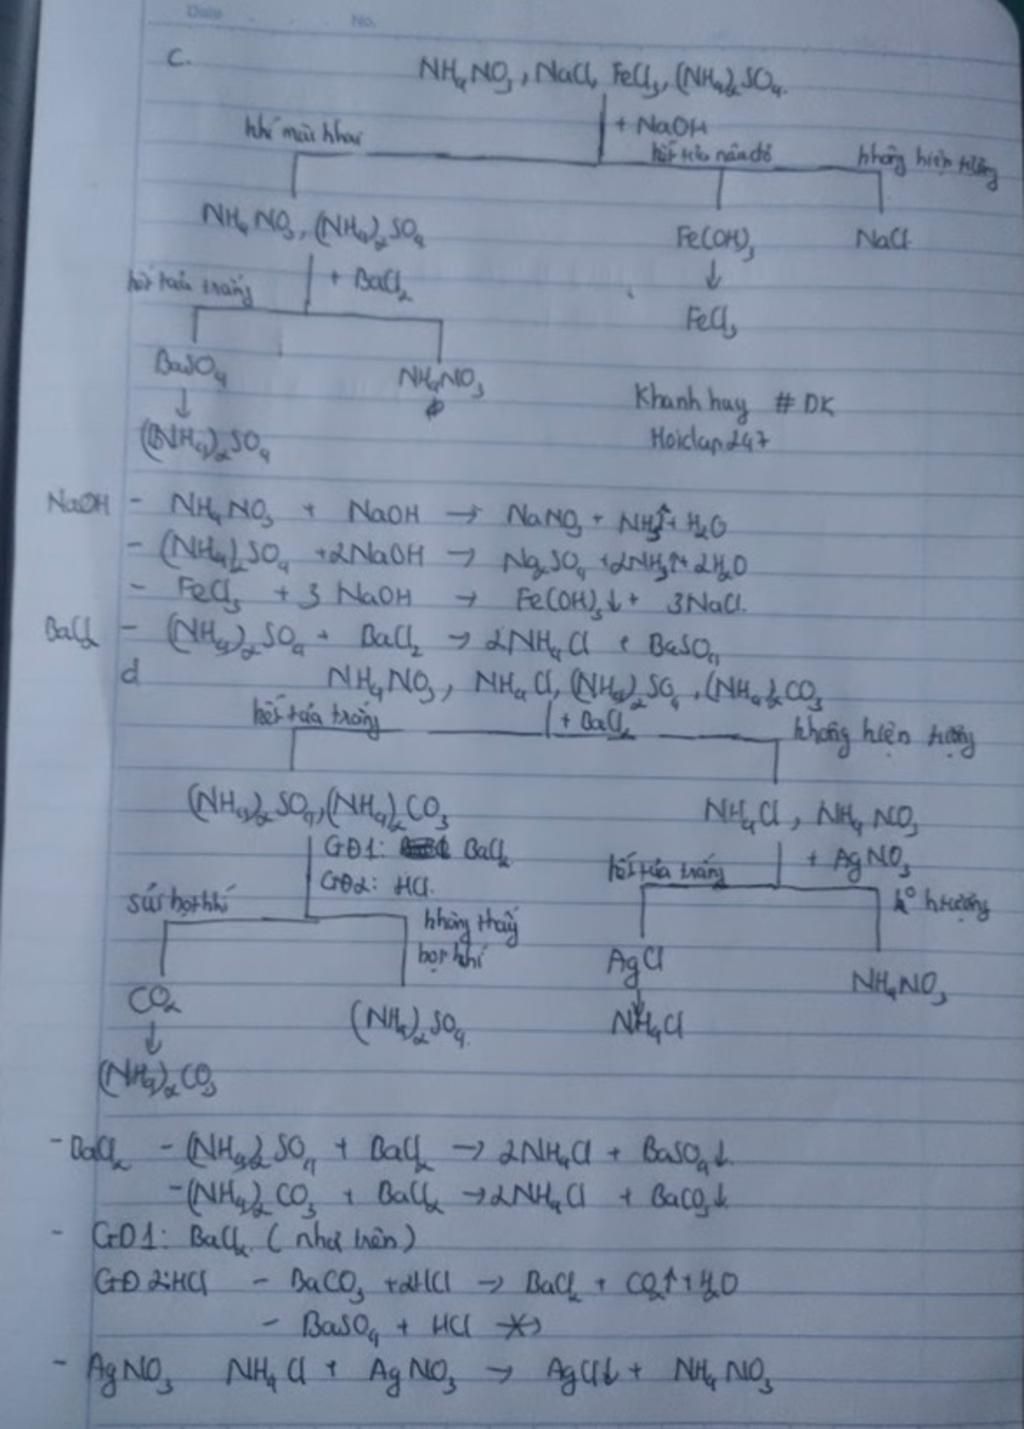 Date No.
c. NH₄NO₃, NaCl, FeCl₃, (NH₄)₂SO₄.
+ NaOH
khí mùi khai kết tủa nâu đỏ không hiện tượng
NH₄NO₃, (NH₄)₂SO₄ Fe(OH)₃ NaCl
kết tủa trắng + BaCl₂ ↓
FeCl₃
BaSO₄ NH₄NO₃
↓ Khanh huy # DK
(NH₄)₂SO₄ Hoidap247
NaOH - NH₄NO₃ + NaOH → NaNO₃ + NH₃↑ + H₂O
- (NH₄)₂SO₄ + 2NaOH → Na₂SO₄ + 2NH₃↑ + 2H₂O
- FeCl₃ + 3 NaOH → Fe(OH)₃↓ + 3NaCl.
BaCl₂ - (NH₄)₂SO₄ + BaCl₂ → 2NH₄Cl + BaSO₄
d NH₄NO₃, NH₄Cl, (NH₄)₂SO₄, (NH₄)₂CO₃
kết tủa trắng + BaCl₂ không hiện tượng
(NH₄)₂SO₄, (NH₄)₂CO₃ NH₄Cl, NH₄NO₃
GĐ1: BaCl₂ kết tủa trắng + AgNO₃
GĐ2: HCl. k° h tượng
sủi bọt khí không thấy
bọt khí AgCl NH₄NO₃
CO₂ (NH₄)₂SO₄ ↓
↓ NH₄Cl
(NH₄)₂CO₃
- BaCl₂ - (NH₄)₂SO₄ + BaCl₂ → 2NH₄Cl + BaSO₄↓
- (NH₄)₂CO₃ + BaCl₂ → 2NH₄Cl + BaCO₃↓
- GĐ1: BaCl₂ (như trên)
GĐ2: HCl - BaCO₃ + 2HCl → BaCl₂ + CO₂↑ + H₂O
- BaSO₄ + HCl -×->
- AgNO₃ NH₄Cl + AgNO₃ → AgCl↓ + NH₄NO₃